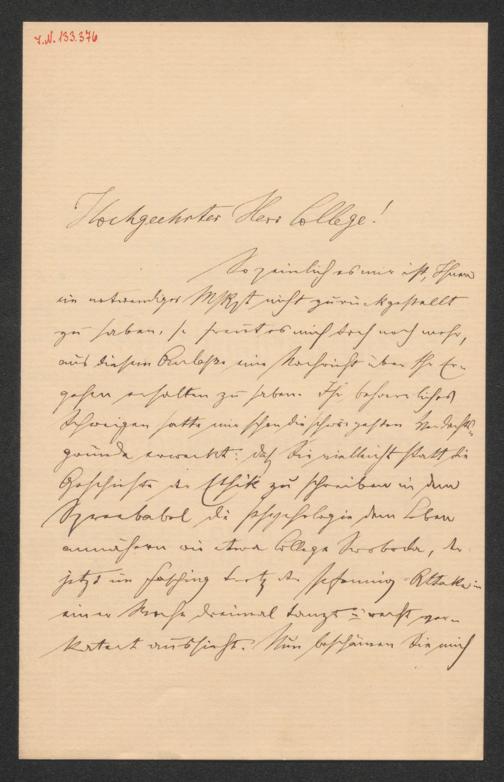 I.N. 133.376
Hochgeehrter Herr College!
So peinlich es mir ist, Ihnen
ein notwendiges Mskpt nicht zurückgestellt
zu haben, so freut es mich doch noch mehr,
aus diesem Anlasse eine Nachricht über Ihr Er-
gehen erhalten zu haben. Ihr beharrliches
Schweigen hatte mir schon die schwärzesten Verdachts-
gründe erweckt: daß Sie vielleicht statt die
Geschichte der Ethik zu schreiben in dem
Spreebabel die Psychologie dem Leben
annähern wie etwa College Swoboda, der
jetzt im Fasching trotz der Pfennig-Attake in
einer Woche dreimal tanzt u. recht ver-
katert aussieht. Nun beschämen Sie mich